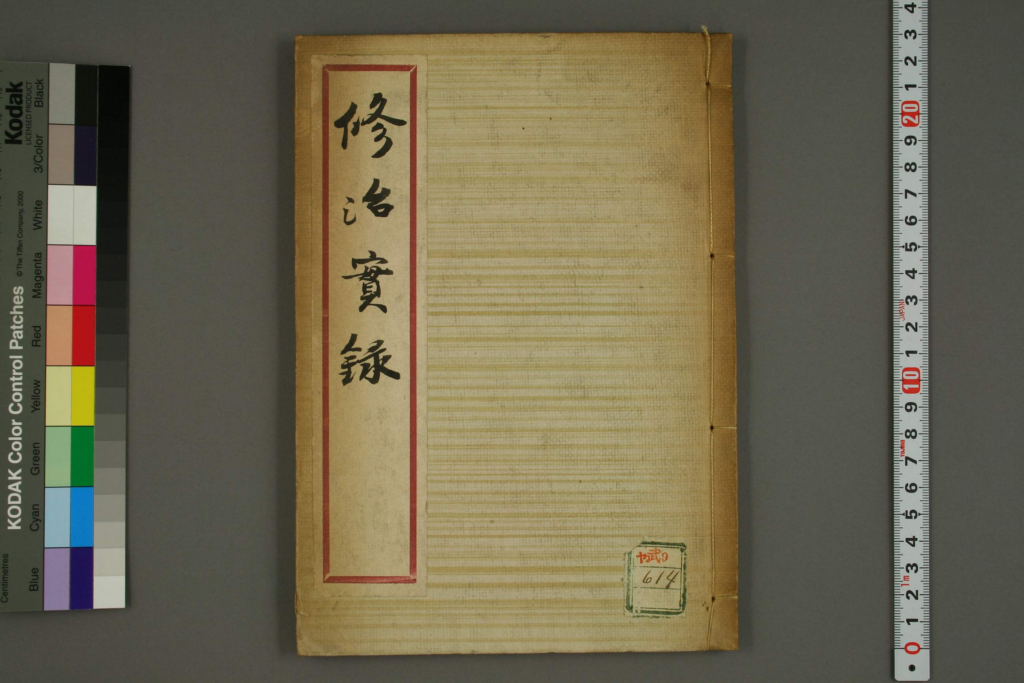 修治實錄
ヤ武9
614
Kodak
LICENSED PRODUCT
KODAK Color Control Patches
© The Tiffen Company, 2000
Centimetres
Blue
Cyan
Green
Yellow
Red
Magenta
White
3/Color
Black
4
3
2
1
20
9
8
7
6
5
4
3
JAPAN
2
1
10
9
8
7
6
5
4
3
1m
2
1
0